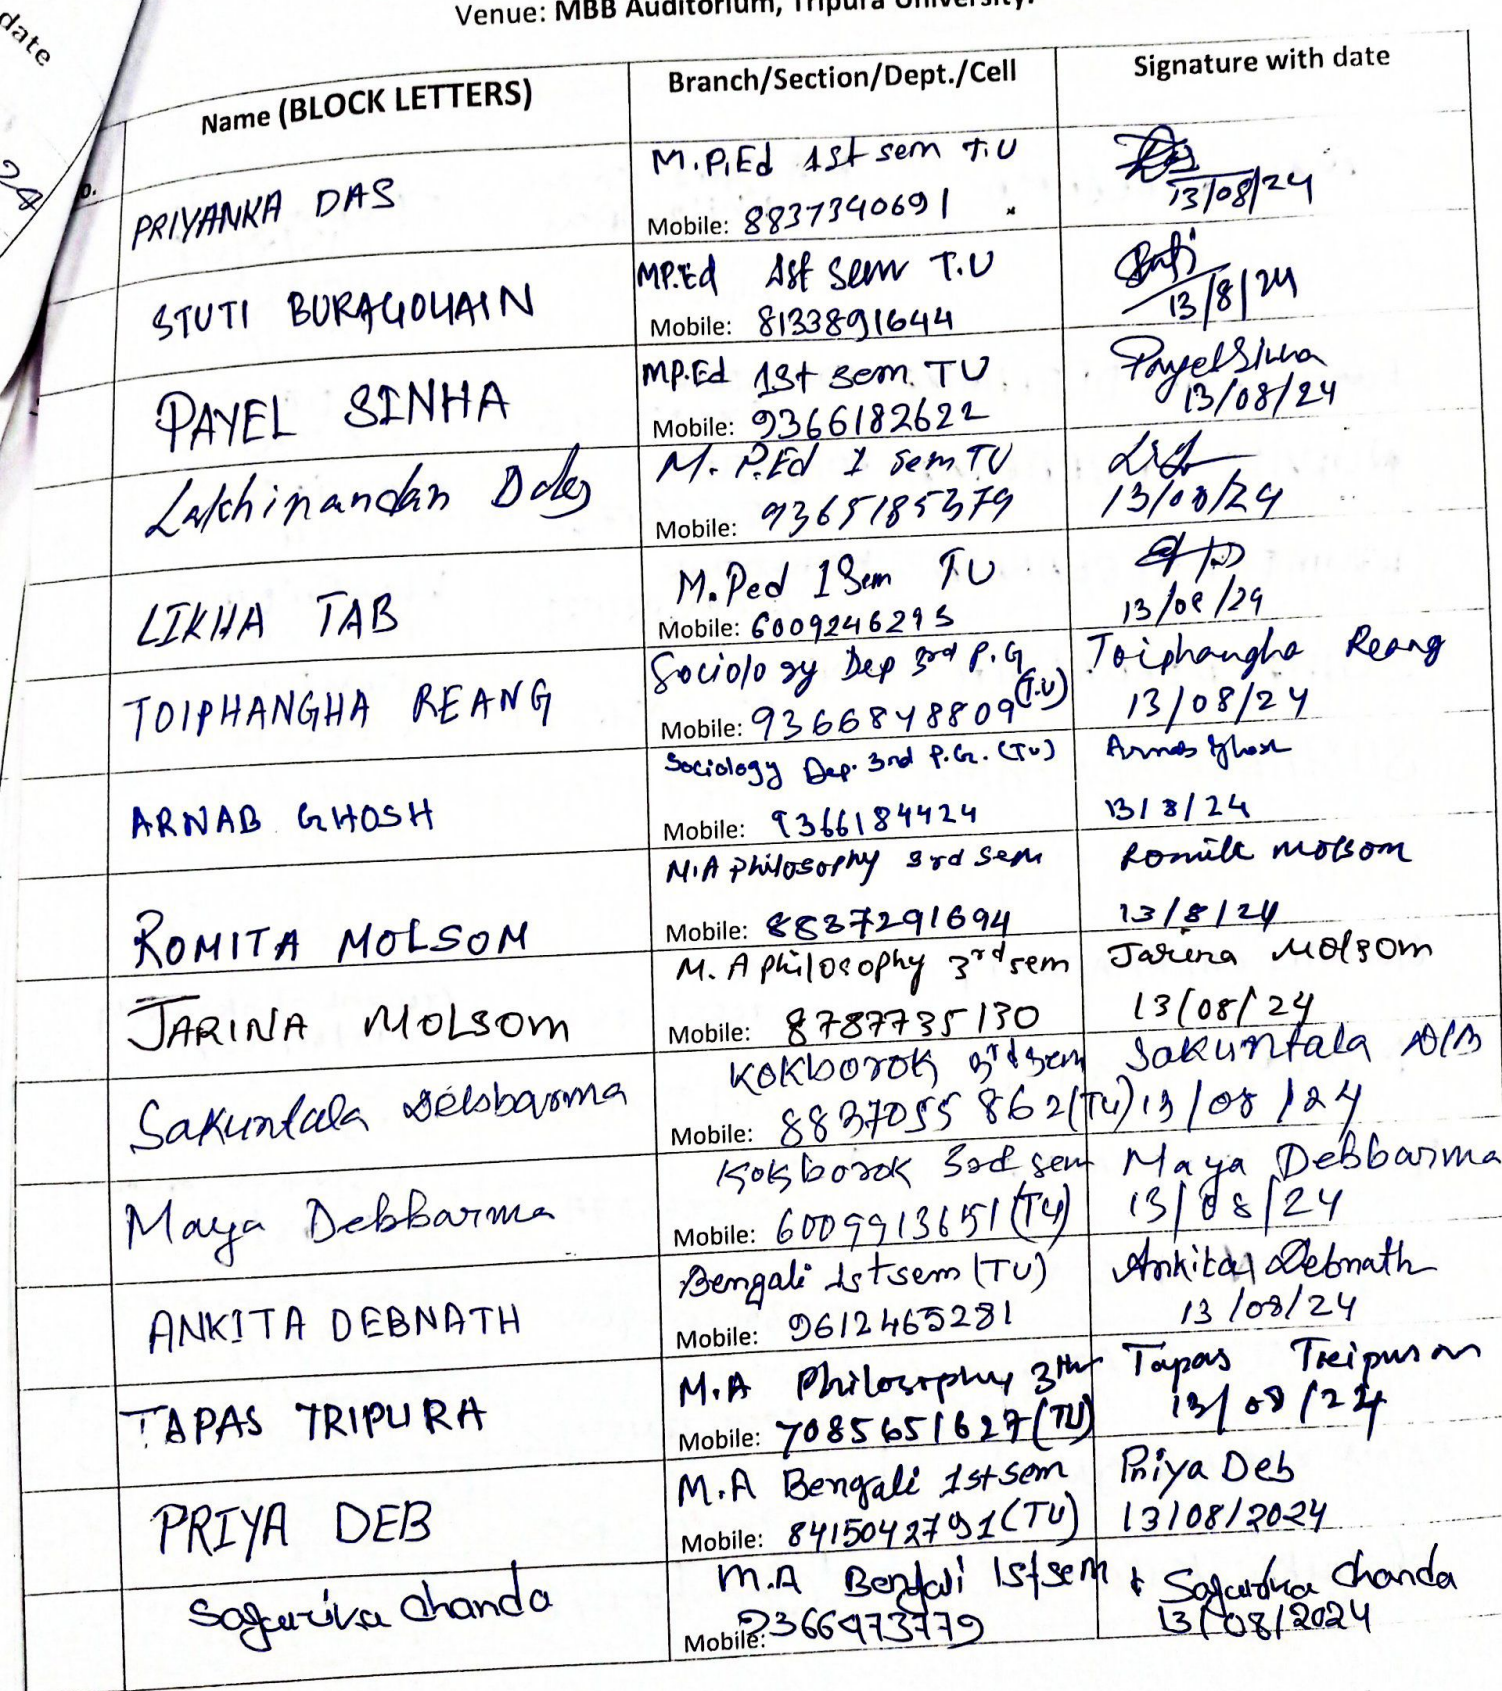 date
24
Venue: MBB Auditorium, Tripura University.
Name (BLOCK LETTERS) Branch/Section/Dept./Cell Signature with date
PRIYANKA DAS
M.P.Ed 1st sem T.U
Mobile: 8837340691
13/08/24
STUTI BURAGOHAIN
MP.Ed 1st sem T.U
Mobile: 8133891644
13/8/24
PAYEL SINHA
MP.Ed 1st sem. TU
Mobile: 9366182622
Payel Sinha
13/08/24
Lakhinandan Doley
M. P.Ed I sem TU
Mobile: 9365185379
13/08/24
LIKHA TAB
M.Ped I Sem TU
Mobile: 6009246295
13/08/24
TOIPHANGHA REANG
Sociology Dep 3rd P.G
Mobile: 9366848809 (T.U)
Toiphangha Reang
13/08/24
ARNAB GHOSH
Sociology Dep. 3nd P.G. (TU)
Mobile: 9366184424
Arnab Ghosh
13/8/24
ROMITA MOLSOM
M.A Philosophy 3rd sem
Mobile: 8837291694
Romita Molsom
13/8/24
JARINA MOLSOM
M. A philosophy 3rd sem
Mobile: 8787735130
Jarina Molsom
13/08/24
Sakuntala Debbarma
Kokborok 3rd sem
Mobile: 8837055862 (TU)
Sakuntala D/B
13/08/24
Maya Debbarma
Kokborok 3rd sem
Mobile: 6009913651 (TU)
Maya Debbarma
13/08/24
ANKITA DEBNATH
Bengali 1st sem (TU)
Mobile: 9612465281
Ankita Debnath
13/08/24
TAPAS TRIPURA
M.A Philosophy 3th
Mobile: 7085651627 (TU)
Tapas Tripura
13/08/24
PRIYA DEB
M.A Bengali 1st sem
Mobile: 8415042791 (TU)
Priya Deb
13/08/2024
Sagarika Chanda
M.A Bengali 1st sem
Mobile: 9366973779
Sagarika Chanda
13/08/2024